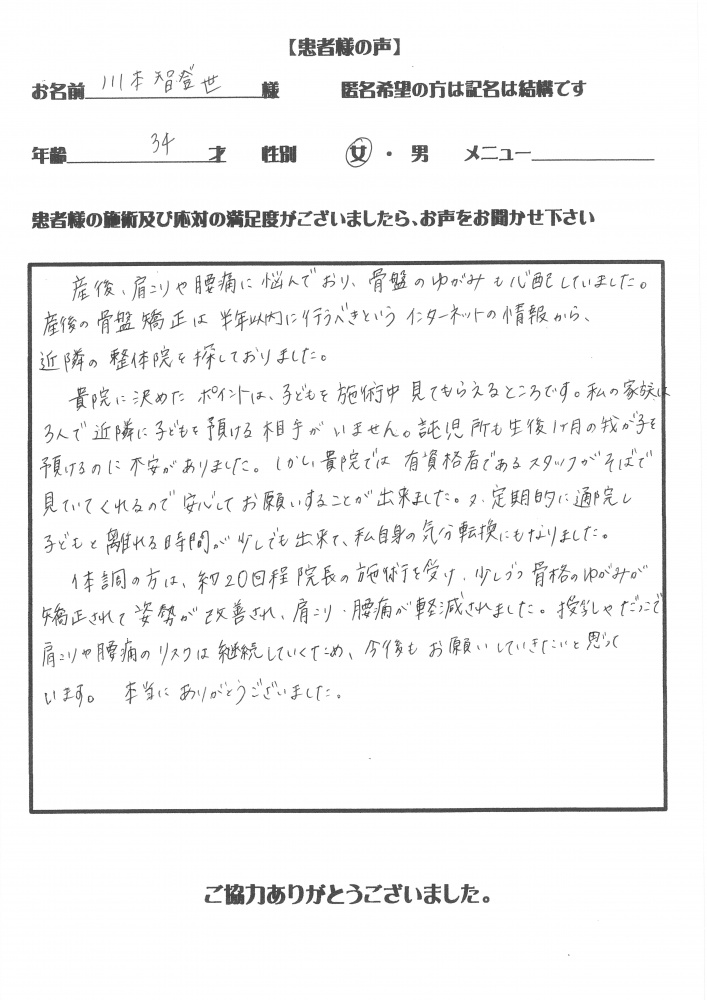 【患者様の声】
お名前 川本智登世 様 匿名希望の方は記名は結構です
年齢 34 才 性別 女 ・ 男 メニュー
患者様の施術及び応対の満足度がございましたら、お声をお聞かせ下さい
産後、肩こりや腰痛に悩んでおり、骨盤のゆがみも心配していました。
産後の骨盤矯正は半年以内に行うべきというインターネットの情報から、
近隣の整体院を探しておりました。
貴院に決めたポイントは、子どもを施術中見てもらえるところです。私の家族は
3人で近隣に子どもを預ける相手がいません。託児所も生後1ヶ月の我が子を
預けるのに不安がありました。しかし貴院では有資格者であるスタッフがそばで
見ていてくれるので安心してお願いすることが出来ました。又、定期的に通院し
子どもと離れる時間が少しでも出来て、私自身の気分転換にもなりました。
体調の方は、約20回程院長の施術を受け、少しづつ骨格のゆがみが
矯正されて姿勢が改善され、肩こり・腰痛が軽減されました。授乳やだっこで
肩こりや腰痛のリスクは継続していくため、今後もお願いしていきたいと思って
います。 本当にありがとうございました。
ご協力ありがとうございました。